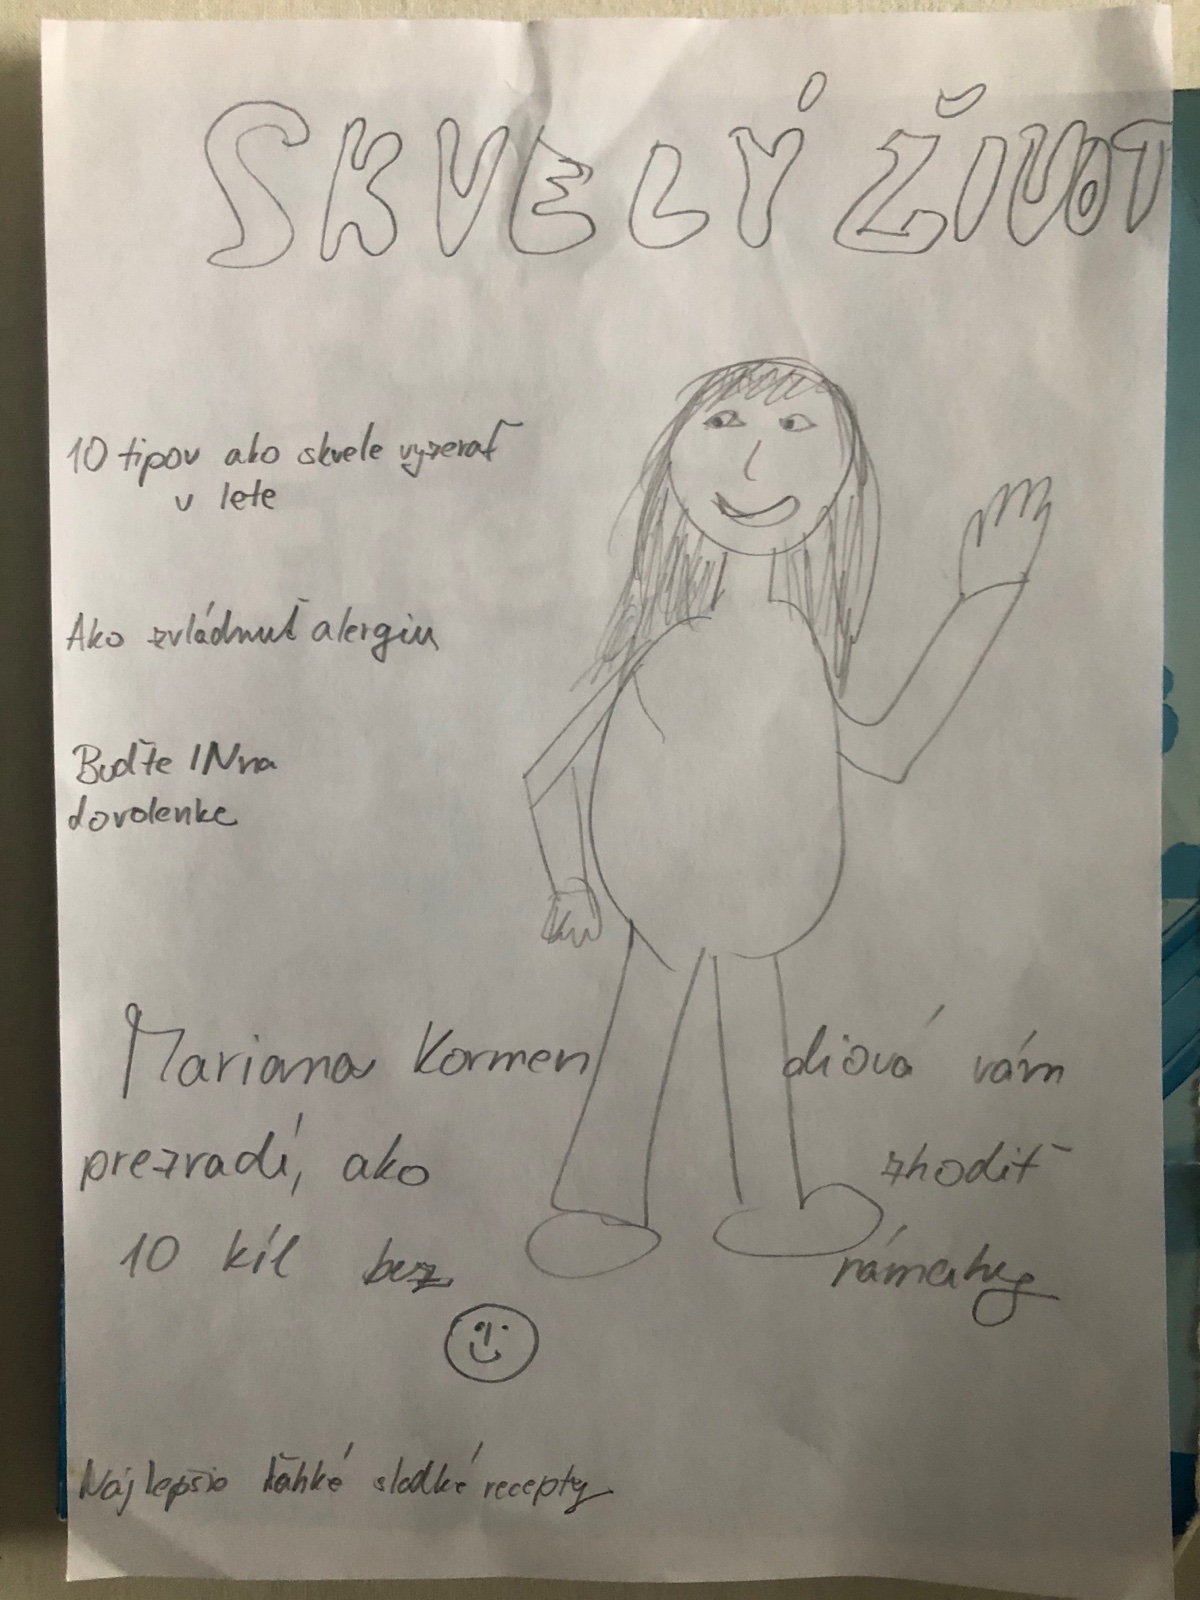 SKVELÝ ŽIVOT
10 tipov ako skvele vyzerať
v lete
Ako zvládnuť alergiu
Buďte IN na
dovolenke
Mariana Kormendiová vám
prezradí, ako zhodiť
10 kíl bez námahy
Najlepšie ľahké sladké recepty